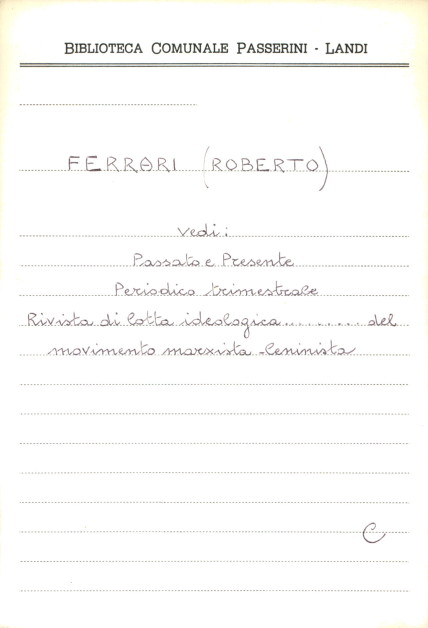 BIBLIOTECA COMUNALE PASSERINI - LANDI
FERRARI (ROBERTO)
Vedi:
Passato e Presente
Periodico trimestrale
Rivista di lotta ideologica.......... del
movimento marxista-leninista
C